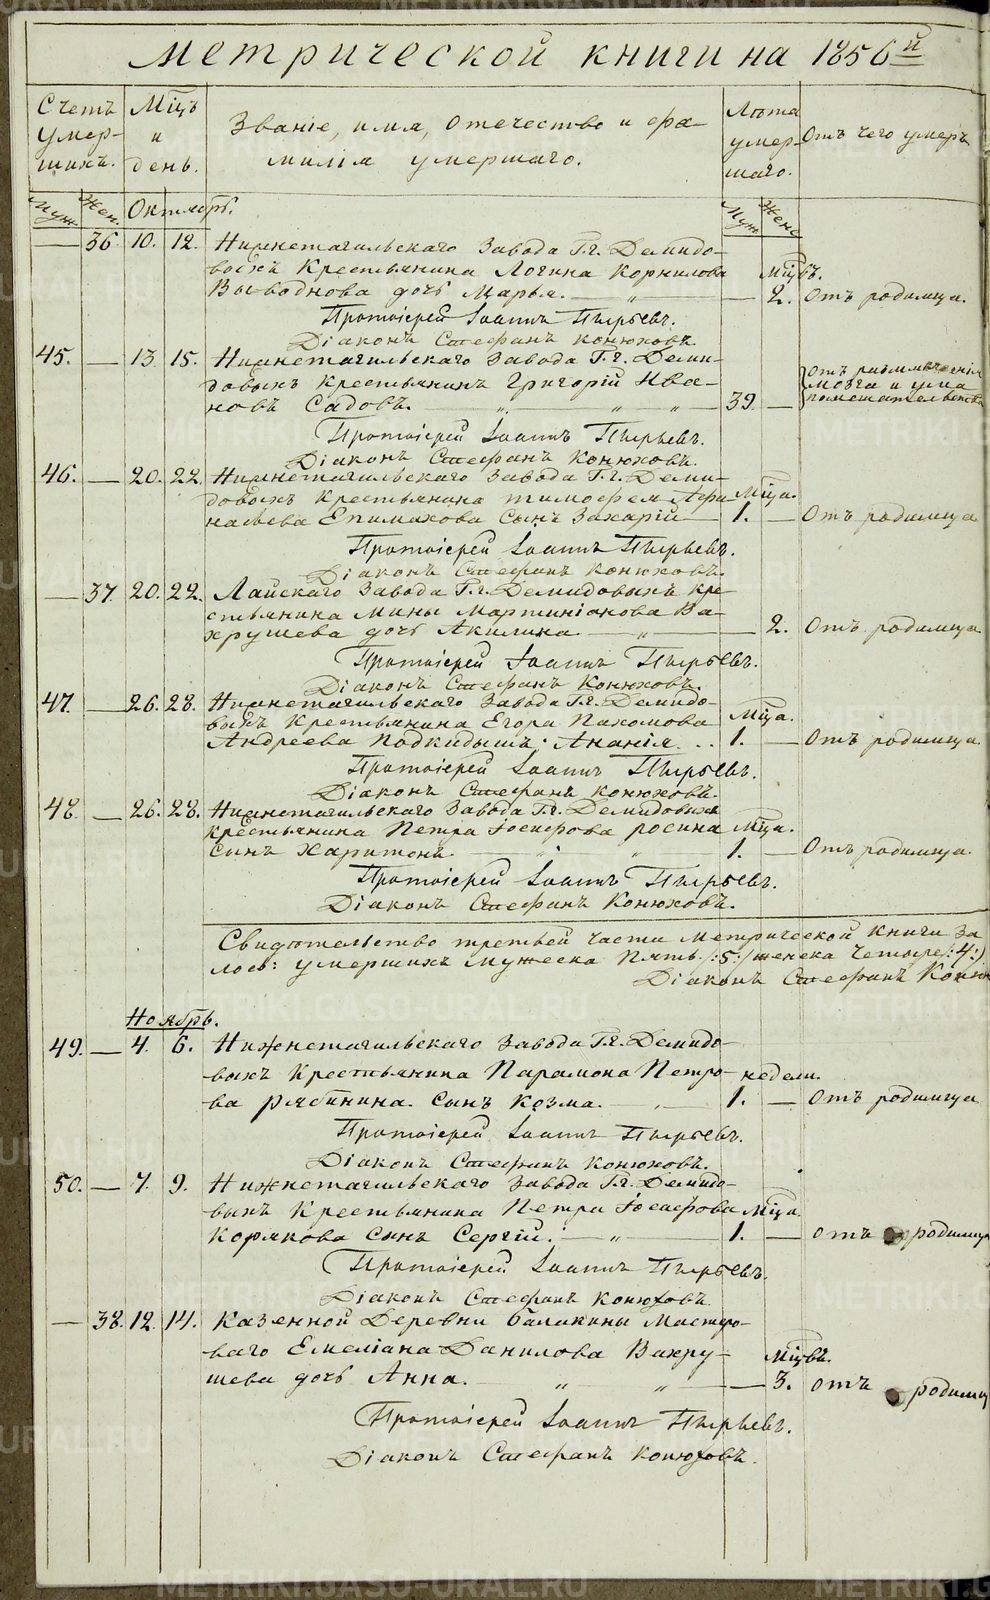 метрической книги на 1856й
Счетъ умершихъ. Мѣцъ и день. Званіе, имя, отечество и фамилія умершаго. Лѣта умершаго. Отъ чего умеръ
Муж. Жен. Октябрь. Муж. Женс
— 36 10. 12. Нижнетагильскаго Завода Г.г. Демидо-
выхъ Крестьянина Логина Корнилова Мѣцвъ.
дочь Марья. — „ — 2. Отъ родимца.
Протоіерей Іоаннъ Пырьевъ.
Діаконъ Стефанъ Конюховъ.
45. — 13. 15. Нижнетагильскаго Завода Г.г. Деми-
довыхъ Крестьянинъ Григорій Ива-
новъ Садовъ. — „ „ „ — 39. — Отъ размягченія мозга и ума помешательства
Протоіерей Іоаннъ Пырьевъ.
Діаконъ Стефанъ Конюховъ.
46. — 20. 22. Нижнетагильскаго Завода Г.г. Деми-
довыхъ Крестьянина Тимофея Афа- Мѣца.
насьева Епимахова Сынъ Захарій — 1. — Отъ родимца
Протоіерей Іоаннъ Пырьевъ.
Діаконъ Стефанъ Конюховъ.
— 37. 20. 22. Лайскаго Завода Г.г. Демидовыхъ кре-
стьянина Мины Мартиніанова Ва-
хрушева дочь Акилина. — „ — 2. Отъ родимца
Протоіерей Іоаннъ Пырьевъ.
Діаконъ Стефанъ Конюховъ.
47. — 26. 28. Нижнетагильскаго Завода Г.г. Демидо-
выхъ Крестьянина Егора Пахомова Мѣца.
Андреева Подкидышъ: Ананія. .. 1. — Отъ родимца.
Протоіерей Іоаннъ Пырьевъ.
Діаконъ Стефанъ Конюховъ.
48. — 26. 28. Нижнетагильскаго Завода Г.г. Демидовыхъ
крестьянина Петра Іосифова росина Мѣца.
Сынъ Харитонъ. „ „ 1. — Отъ родимца.
Протоіерей Іоаннъ Пырьевъ.
Діаконъ Стефанъ Конюховъ.
Свидѣтельство третьей части Метрической Книги За
умершихъ мужеска Пять /:5:/ женска Четыре /:4:/
Діаконъ Стефанъ
Ноябрь.
49. — 4. 6. Нижнетагильскаго Завода Г.г. Демидо-
выхъ Крестьянина Парамона Петро- недели.
ва рябинина. Сынъ Козма. — „ — 1. — Отъ родимца
Протоіерей Іоаннъ Пырьевъ.
Діаконъ Стефанъ Конюховъ.
50. — 7. 9. Нижнетагильскаго Завода Г.г. Демидо-
выхъ Крестьянина Петра Іосифова Мѣца.
Корякова Сынъ Сергій. — „ — 1. — отъ родимца
Протоіерей Іоаннъ Пырьевъ.
Діаконъ Стефанъ Конюховъ.
— 38. 12. 14. Казенной Деревни балакины Мастеро-
ваго Емеліана Данилова Вахру- Мѣцвъ.
шева дочь Анна. — „ „ — 3. отъ родимц
Протоіерей Іоаннъ Пырьевъ.
Діаконъ Стефанъ Конюховъ.
METRIKI.GASO-URAL.RU